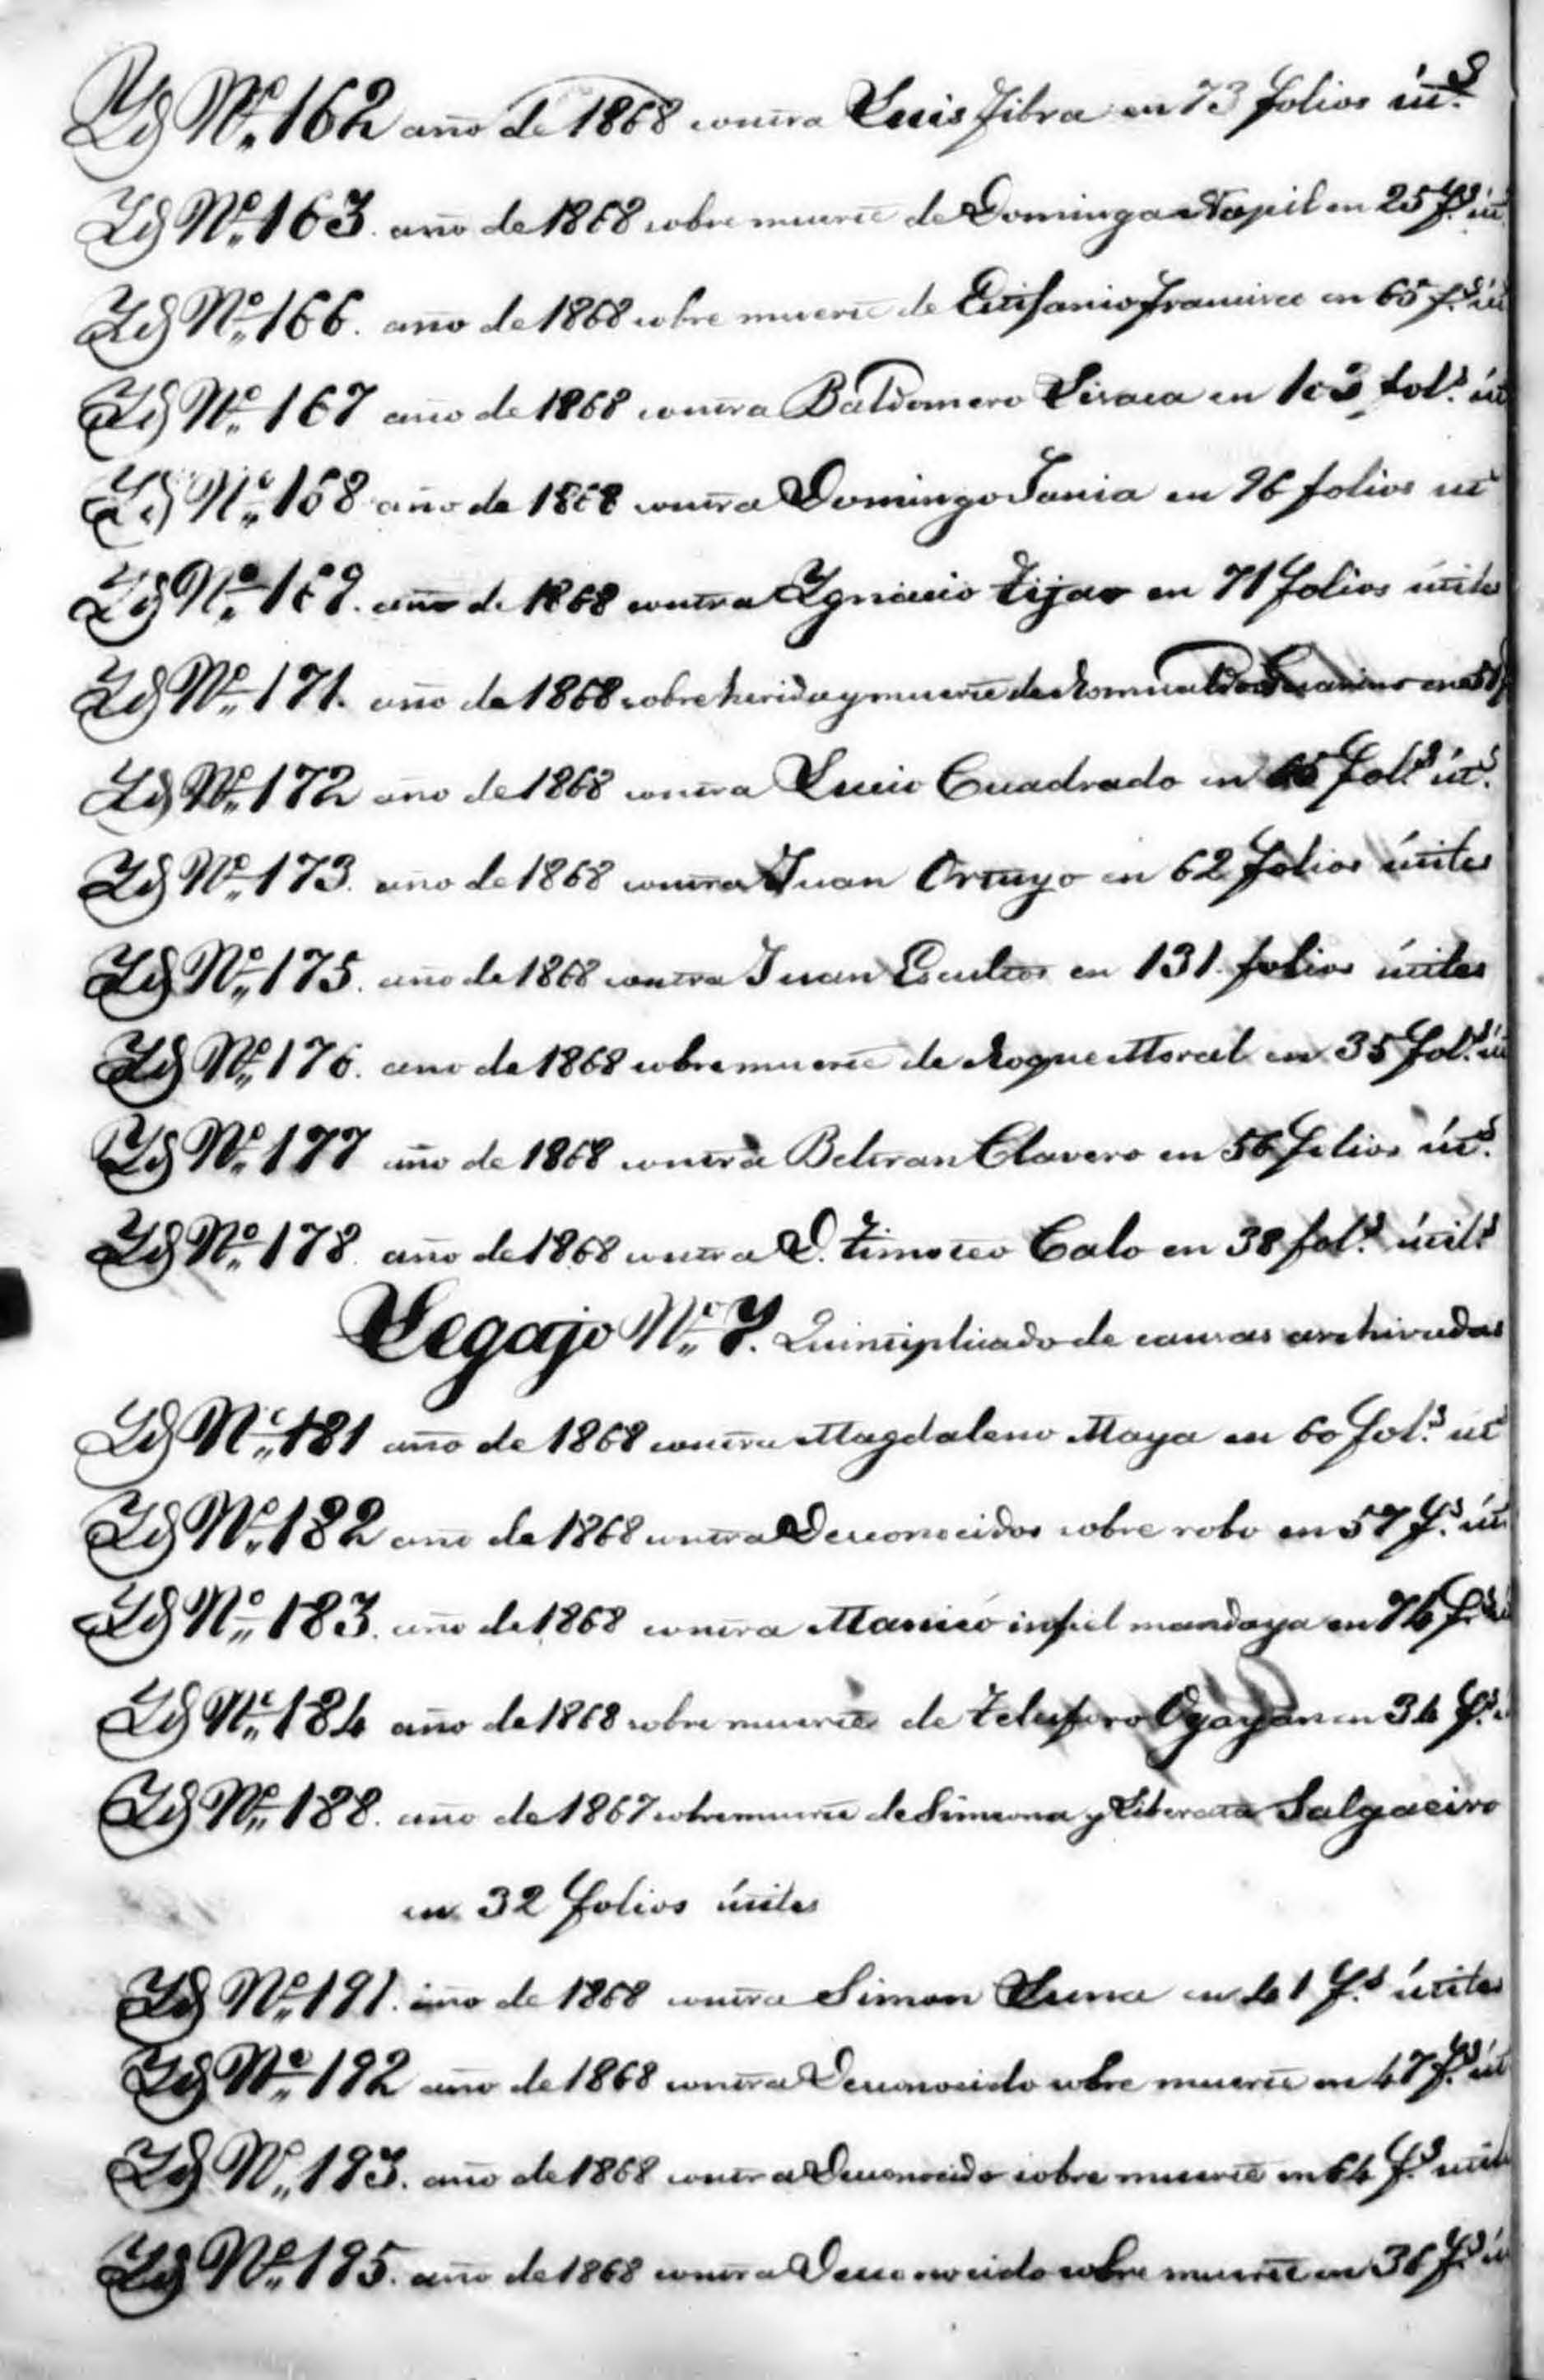 Yd Nº 162 año de 1868 contra Luis Jibra en 73 folios út.s
Yd Nº 163. año de 1868 sobre muerte de Dominga Napil en 25 f.s út
Yd Nº 166. año de 1868 sobre muerte de en 65 f.s út
Yd Nº 167 año de 1868 contra Baldomero en 103 fol.s út
Yd Nº 168 año de 1868 contra Domingo Tania en 96 folios ut
Yd Nº 169. año de 1868 contra Ygnacio Tijar en 71 folios útiles
Yd Nº 171. año de 1868 sobre herida y muerte de Romualdo en
Yd Nº 172 año de 1868 contra Lucio Cuadrado en fol.s út.s
Yd Nº 173. año de 1868 contra Juan Ortuyo en 62 folios útiles
Yd Nº 175. año de 1868 contra Juan en 131. folios útiles
Yd Nº 176. año de 1868 sobre muerte de Roque Moral en 35 fol.s út
Yd Nº 177 año de 1868 contra Beltran Clavero en 56 folios út.s
Yd Nº 178. año de 1868 contra D. Timoteo Calo en 38 fol.s útil.s
Legajo Nº 7. Quintiplicado de causas archivadas
Yd Nº 181 año de 1868 contra Magdaleno Maya en 60 fol.s út
Yd Nº 182 año de 1868 contra Desconocidos sobre robo en 57 f.s út
Yd Nº 183. año de 1868 contra Manicó infiel mandaya en 74 f.s
Yd Nº 184 año de 1868 sobre muerte de Telesforo Ogayan en 34 f.s
Yd Nº 188. año de 1867 sobre muerte de Simeona y Liberata Salgaeiro
en 32 folios útiles
Yd Nº 191. año de 1868 contra Simon Luma en 41 f.s útiles
Yd Nº 192 año de 1868 contra Desconocido sobre muerte en 47 f.s út
Yd Nº 193. año de 1868 contra Desconocido sobre muerte en 64 f.s útil
Yd Nº 195. año de 1868 contra Desconocido sobre muerte en 36 f.s ú